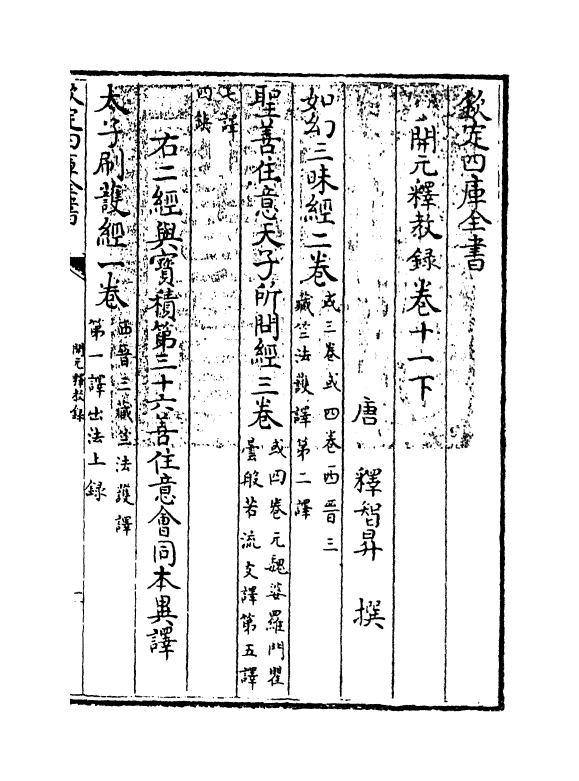 欽定四庫全書
開元釋教録卷十一下
唐 釋智昇 撰
如幻三昧經二卷或三卷或四卷西晉三藏竺法護譯第二譯
聖善住意天子所問經三卷或四卷元魏婆羅門瞿曇般若流支譯第五譯
七譯四缺
右二經與寳積第三十六善住意會同本異譯
太子刷護經一卷西晉三藏竺法護譯第一譯出法上録
欽定四庫全書
開元釋教録